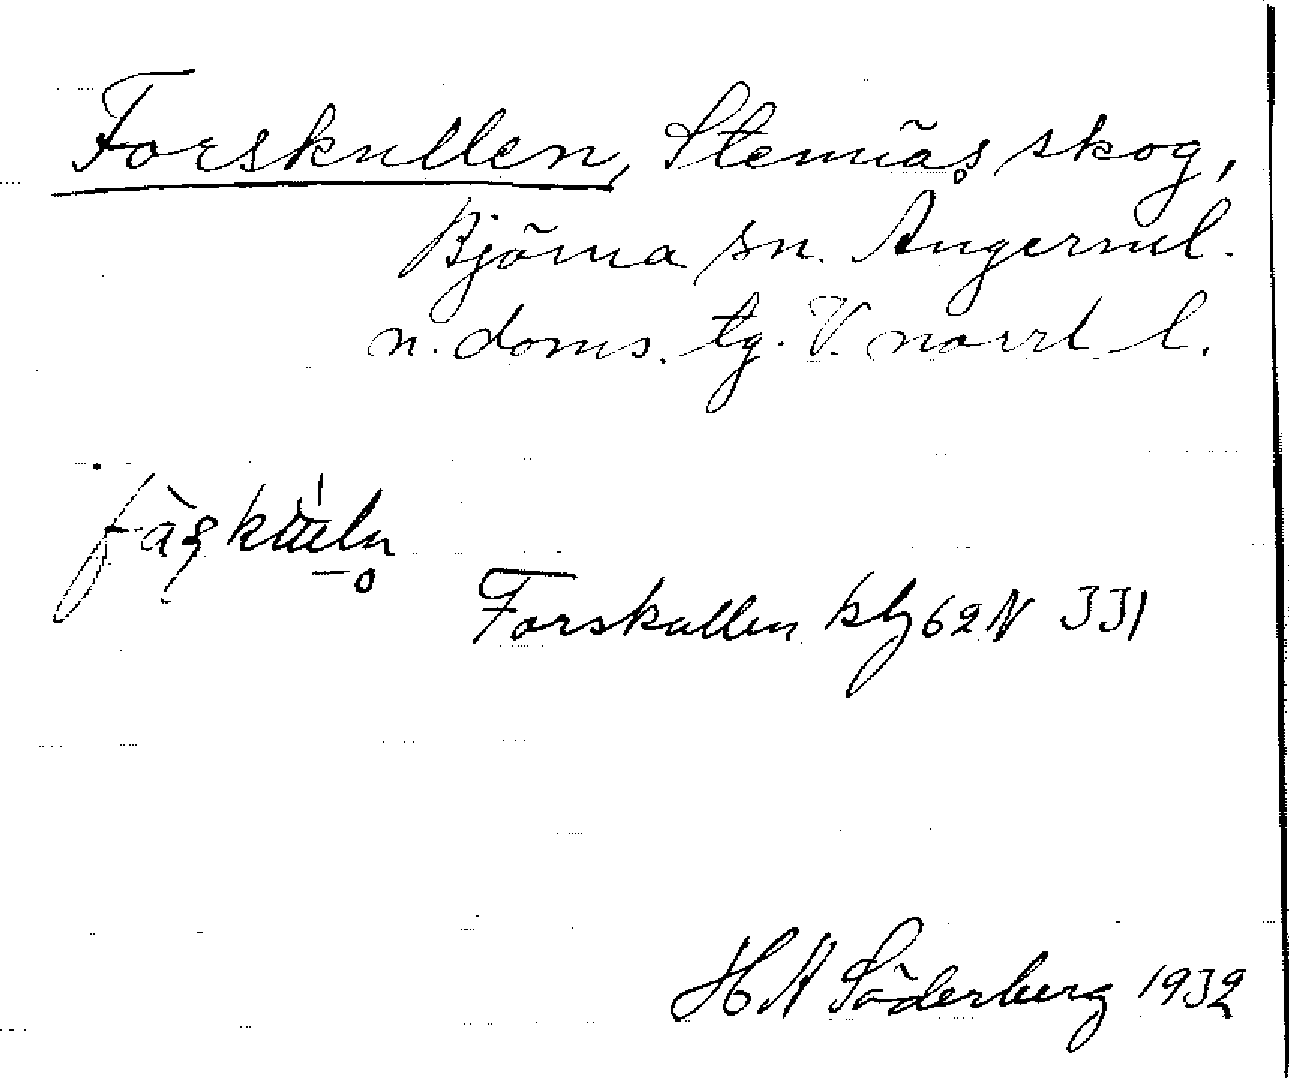 Forskullen, Stennäs skog,
Björna sn. Ångerml.
n. doms. tg. V. norrl l.
Forskullen kbl 62 N 331
H A Söderberg 1932